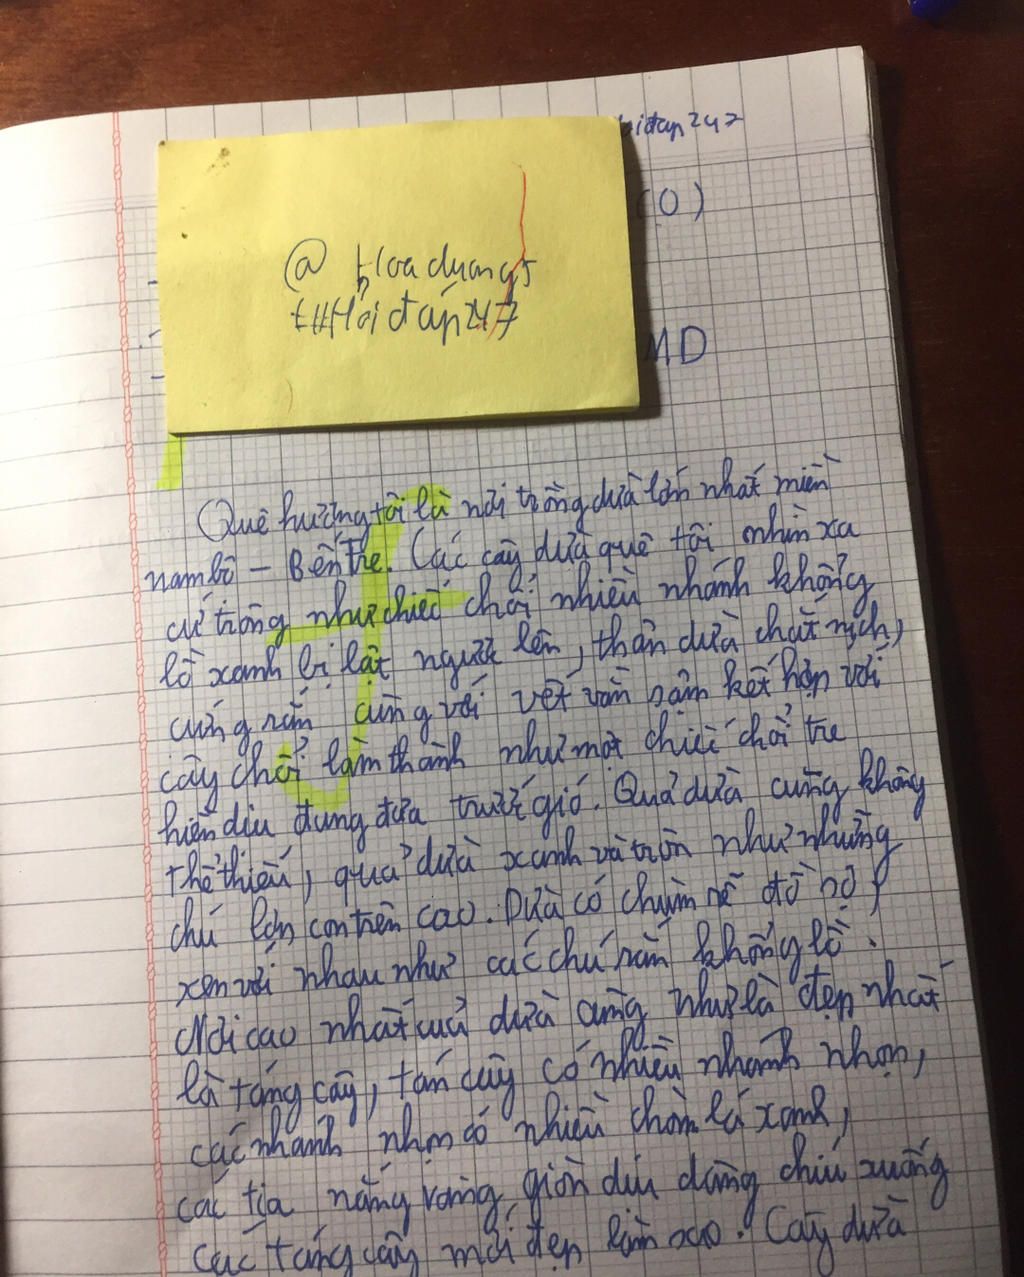 idap247
(0)
@ Hoaduong5
t#Hỏiđáp247
MD
Quê hương tôi là nơi trồng dừa lớn nhất miền
nam bộ – Bến Tre. Các cây dừa quê tôi nhìn xa
cứ trông như chiếc chổi nhiều nhánh khổng
lồ xanh bị lật ngược lên, thân dừa chắt nịch,
cứng rắn cùng với vết vằn sần kết hợp với
cây chổi làm thành như một chiếc chổi tre
hiền dịu đung đưa trước gió. Quả dừa cũng không
thể thiếu, quả dừa xanh và tròn như những
chú lợn con trên cao. Dừa có chùm rễ đồ sộ
xen với nhau như các chú rắn khổng lồ.
Nơi cao nhất của dừa cũng như là đẹp nhất
là táng cây, tán cây có nhiều nhánh nhọn,
các nhánh nhọn có nhiều chòm lá xanh,
các tia nắng vàng giòn dịu dàng chiếu xuống
các táng cây mới đẹp làm sao. Cây dừa